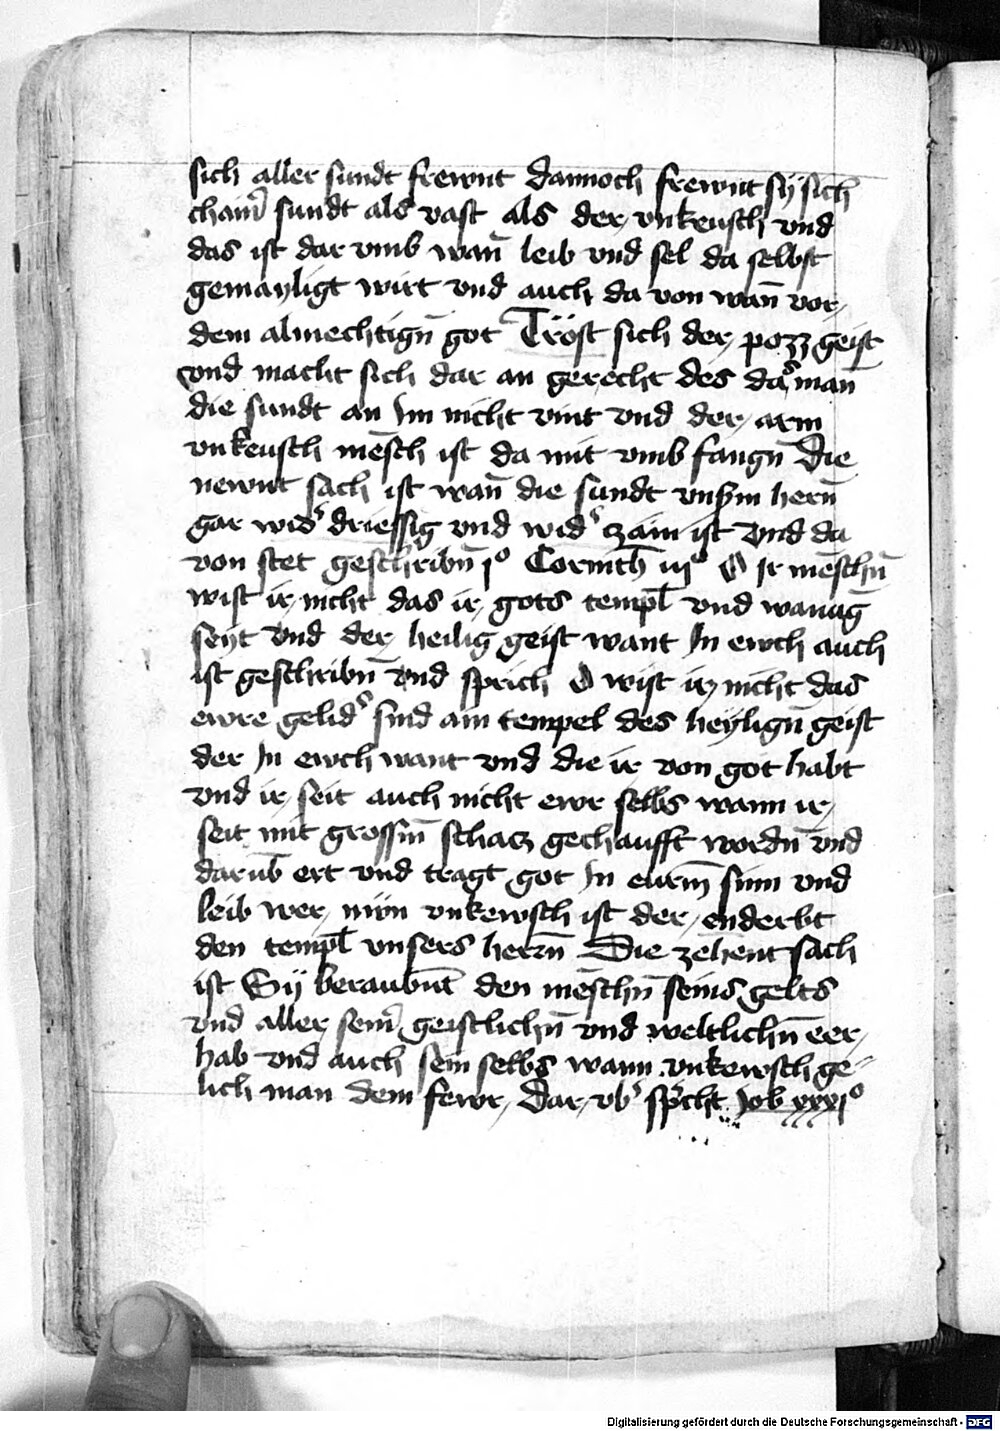 sich aller sundt frewnt dannoch frewnt sÿ sich
chainˀ sundt als vast als der vnkeusch vnd
das ist dar vmb wan̄ leib vnd sel da selbst
gemayligt wirt vnd auch da von wan̄ vor
dem almechtign̄ got Tröst sich der pozz geist
vnd macht sich dar an gerecht des das man
die sundt an Im nicht vint vnd der arm
vnkeusch mēsch ist da mit vmb fangn̄ Die
newnt sach ist wan̄ die sundt vnßm hern̄
gar widˀ driessig vnd widˀ zäm ist Vnd da
von stet geschribn̄ jº Corinth̄ iijº O Ir mēschn̄
wist ir nicht das ir gots templ̄ vnd wanūg
seyt Vnd der heilig geist want In ewch auch
ist geschribn̄ vnd sprich O wist ir nicht das
ewre gelidˀ sind ain tempel des heylign̄ geist
der In ewch want vnd die ir von got habt
vnd ir seit auch nicht ewr selbs wann ir
seit mit grossm̄ schacz gechaufft wordn̄ vnd
darūb ert vnd tragt got In eurm̄ sinn vnd
leib wer nün vnkewsch ist der enderbt
den templ̄ vnsers herrn̄ Die zehent sach
ist Sÿ beraubn̄t den mēschn̄ seins gelts
vnd aller seinˀ geistlichn̄ vnd weltlichn̄ eer
hab vnd auch sein selbs wann vnkewsch ge=
lich man dem fewr Dar vbˀ sp̄cht Job xxxjº
Digitalisierung gefördert durch die Deutsche Forschungsgemeinschaft - DFG